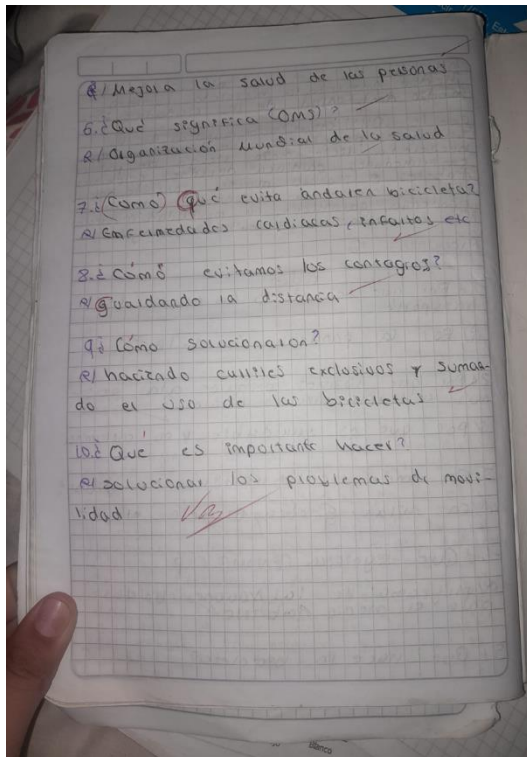 R/ Mejora la salud de las personas
6. ¿Qué significa (OMS)?
R/ Organización Mundial de la salud
7. ¿(Como) qué evita andar en bicicleta?
R/ Enfermedades cardiacas, infartos etc
8. ¿Cómo evitamos los contagios?
R/ guardando la distancia
9¿ Cómo solucionaron?
R/ haciendo carriles exclusivos y suman-
do el uso de las bicicletas
10. ¿Qué es importante hacer?
R/ solucionar los problemas de movi-
lidad
blanco